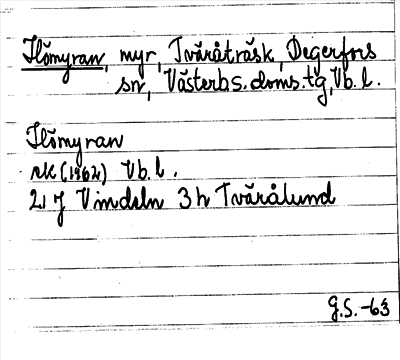 Flömyran, myr, Tväråträsk, Degerfors
sn, Västerb.s.doms.tg, Vb.l.
Flömyran
rk (1962) Vb.l.
21 J Vindeln 3h Tvärålund
G.S. -63